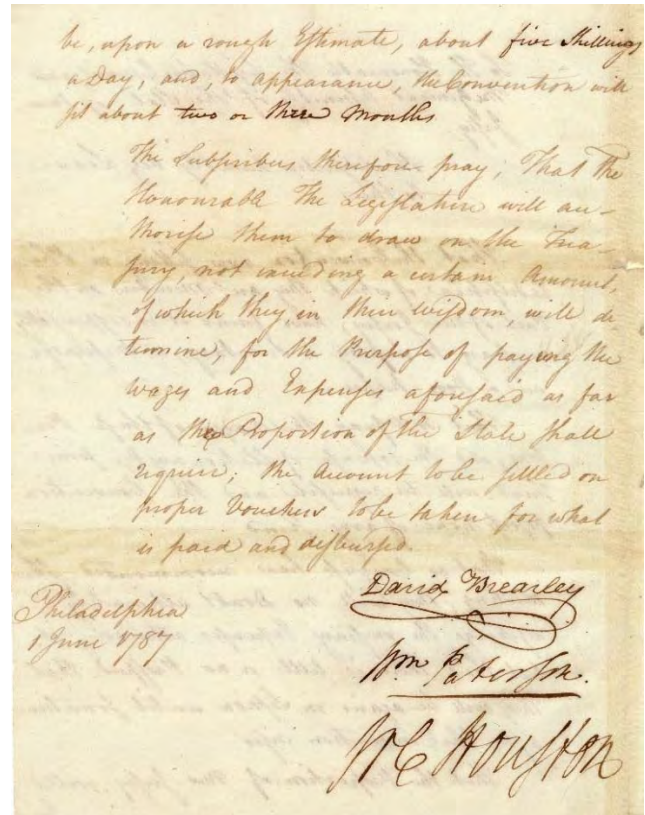 be, upon a rough Estimate, about five Shillings
a Day, and, to appearance, the Convention will
sit about two or three Months
The Subscribers therefore pray, That the
Honourable The Legislature will au-
thorise them to draw on the Trea-
sury, not exceeding a certain Amount,
of which they in their wisdom, will de
termine, for the Purpose of paying the
Wages and Expenses aforesaid as far
as the Proportion of the State shall
require; the Account to be settled on
proper Vouchers to be taken for what
is paid and disbursed.
David Brearley
Philadelphia
1 June 1787
Wm Paterson.
W C Houston